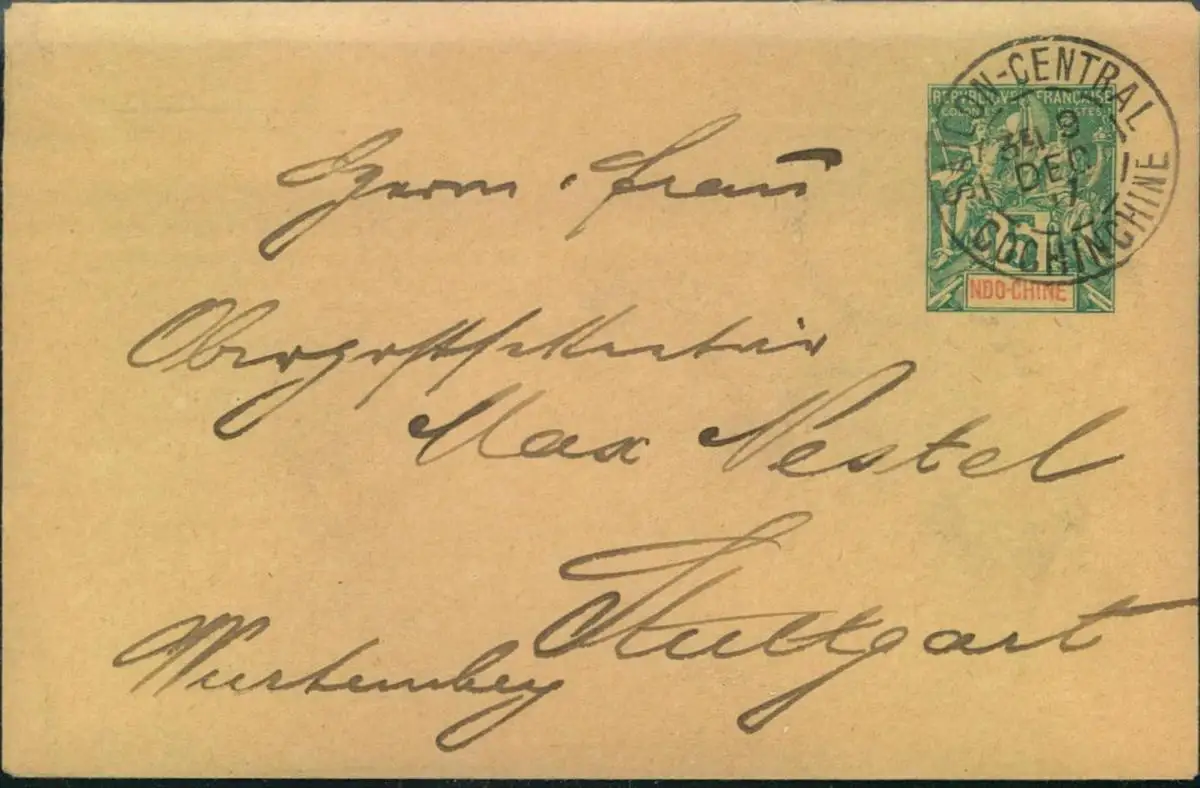 REPUBLIQUE FRANÇAISE
COLONIES POSTES
5
INDO-CHINE
SAIGON-CENTRAL
9
31 DEC
COCHINCHINE
Herrn & Frau
Oberpostsekretär
Max Nestel
Stuttgart
Wurtemberg